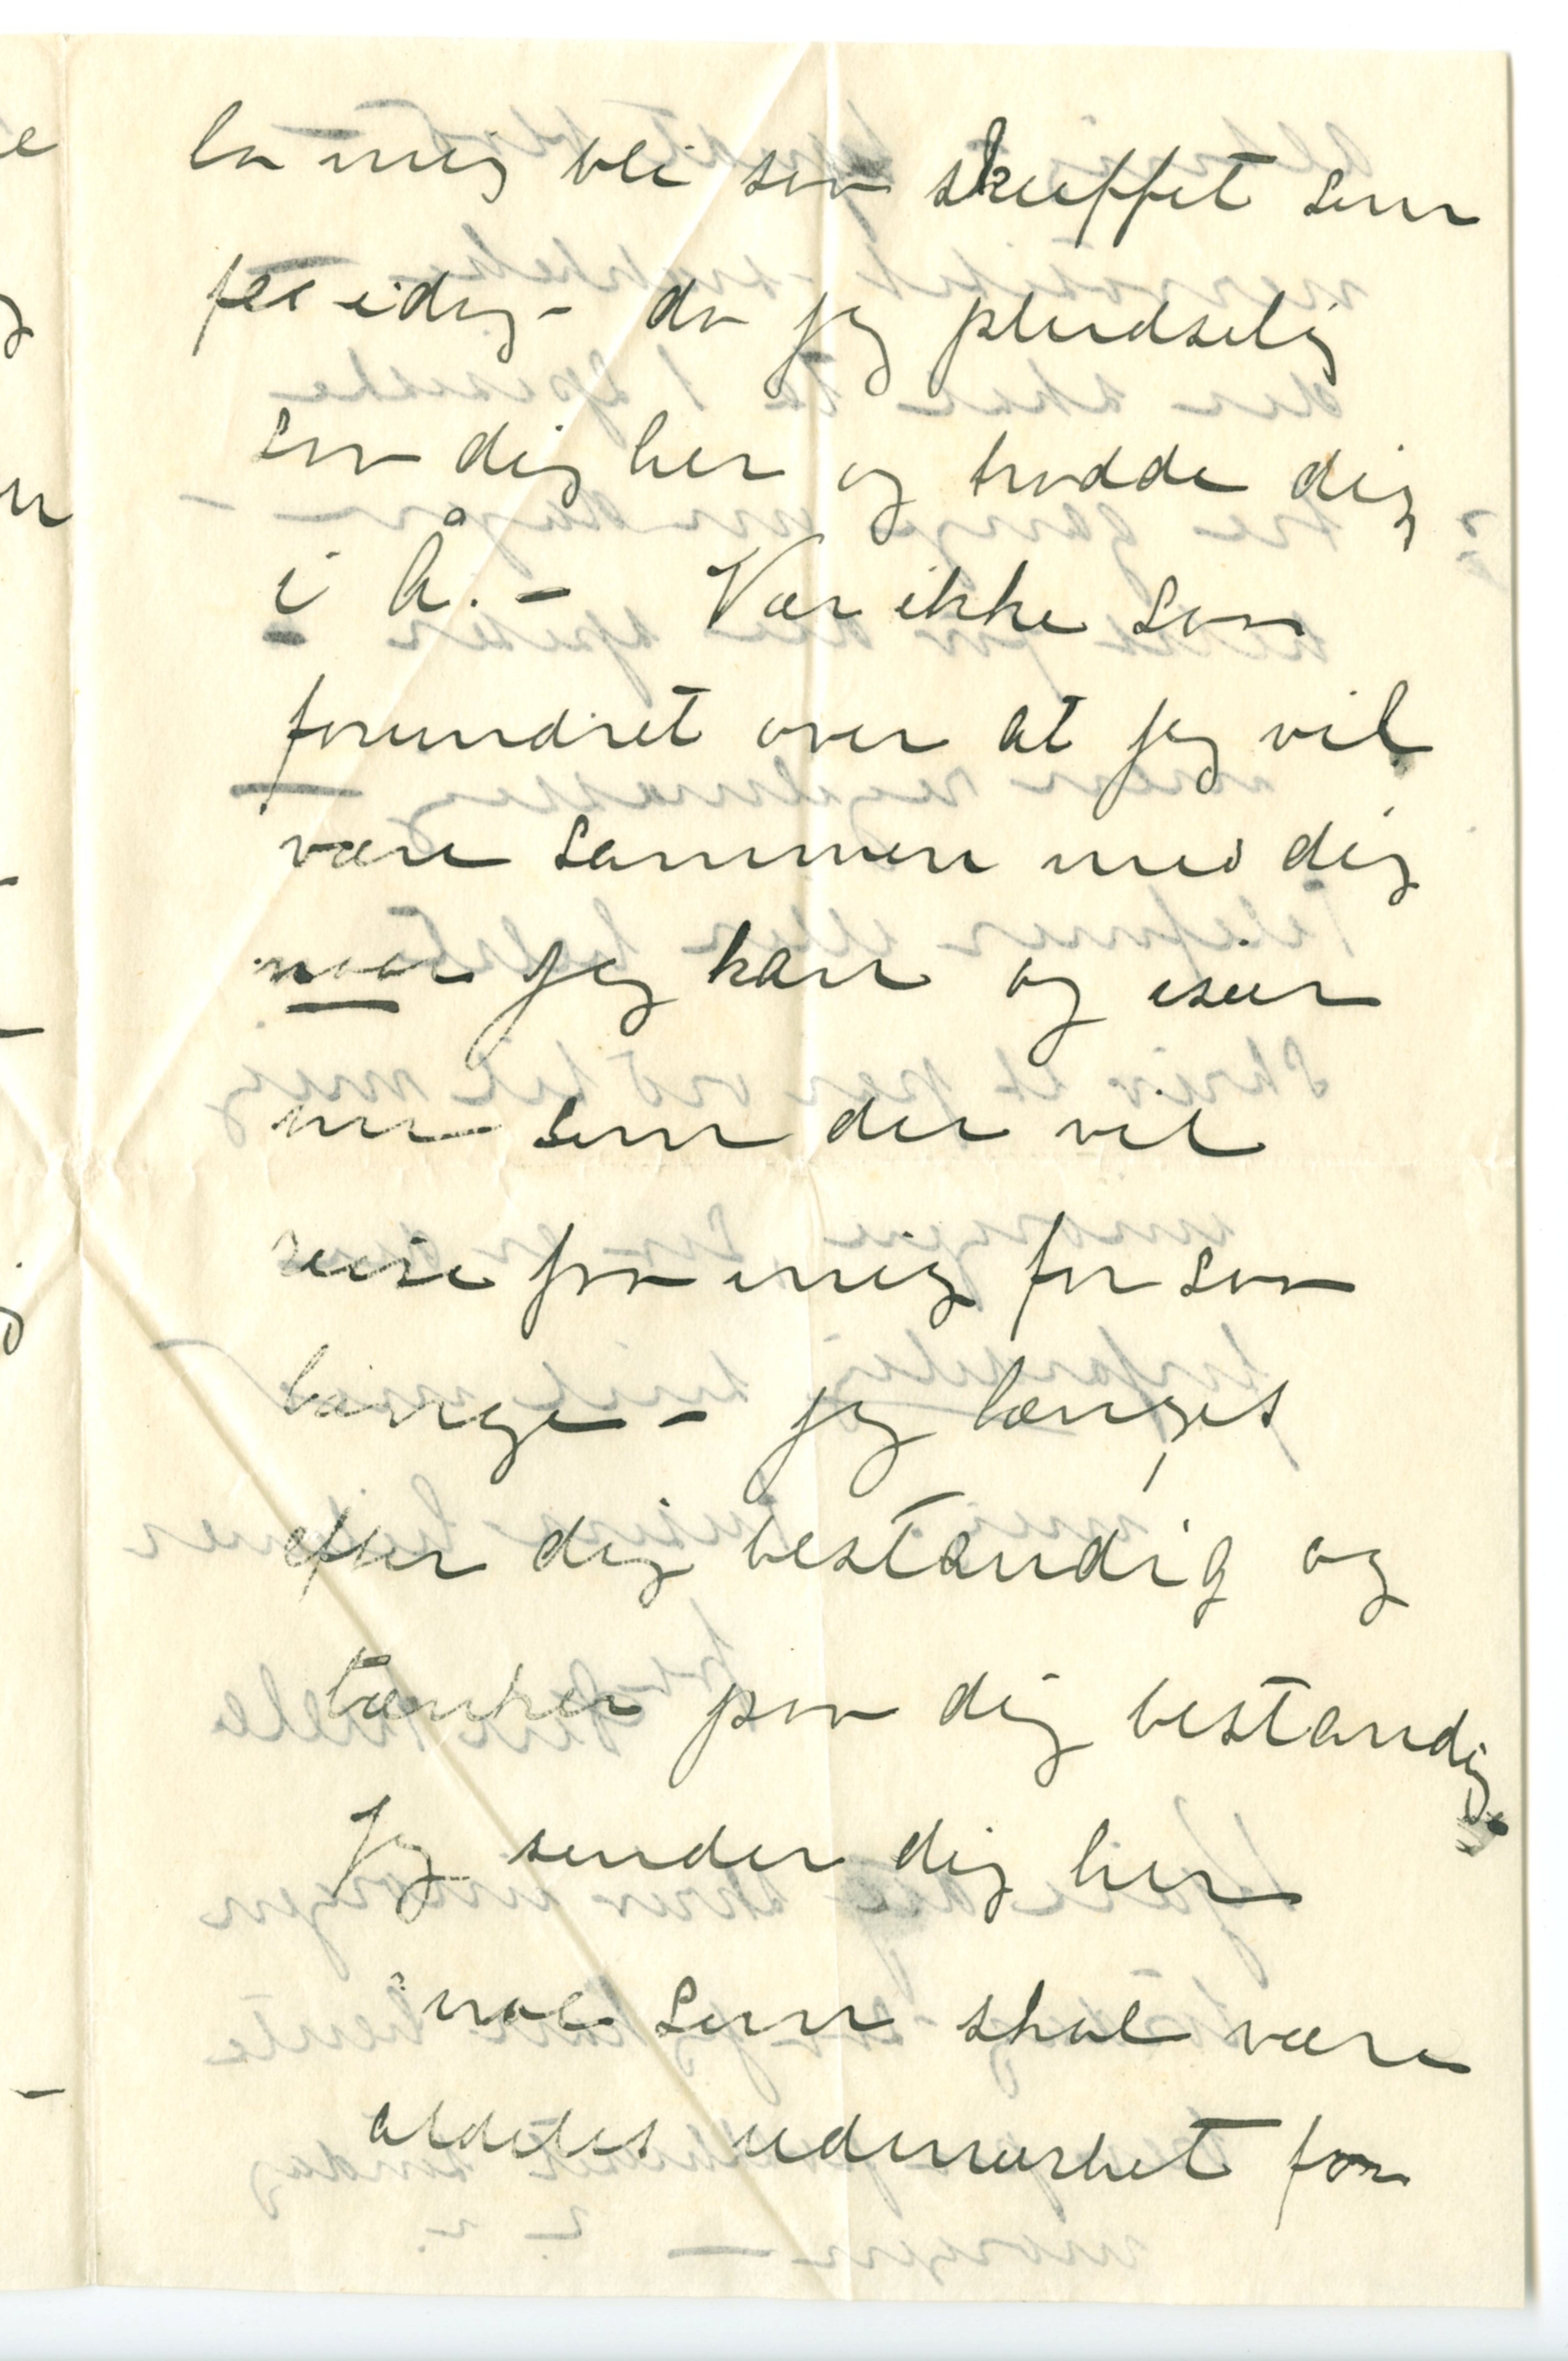 la mig bli saa skuffet som
før idag – da jeg pludselig
saa dig her og trodde dig
i Å. – Vær ikke saa
forundret over at jeg vil
være sammen med dig
naar jeg kan og især
nu som du vil
reise fra mig for saa
længe – jeg længes
efter dig bestandig og
tænker paa dig bestandig.
Jeg sender dig her
noe som skal være
aldeles udmerket for